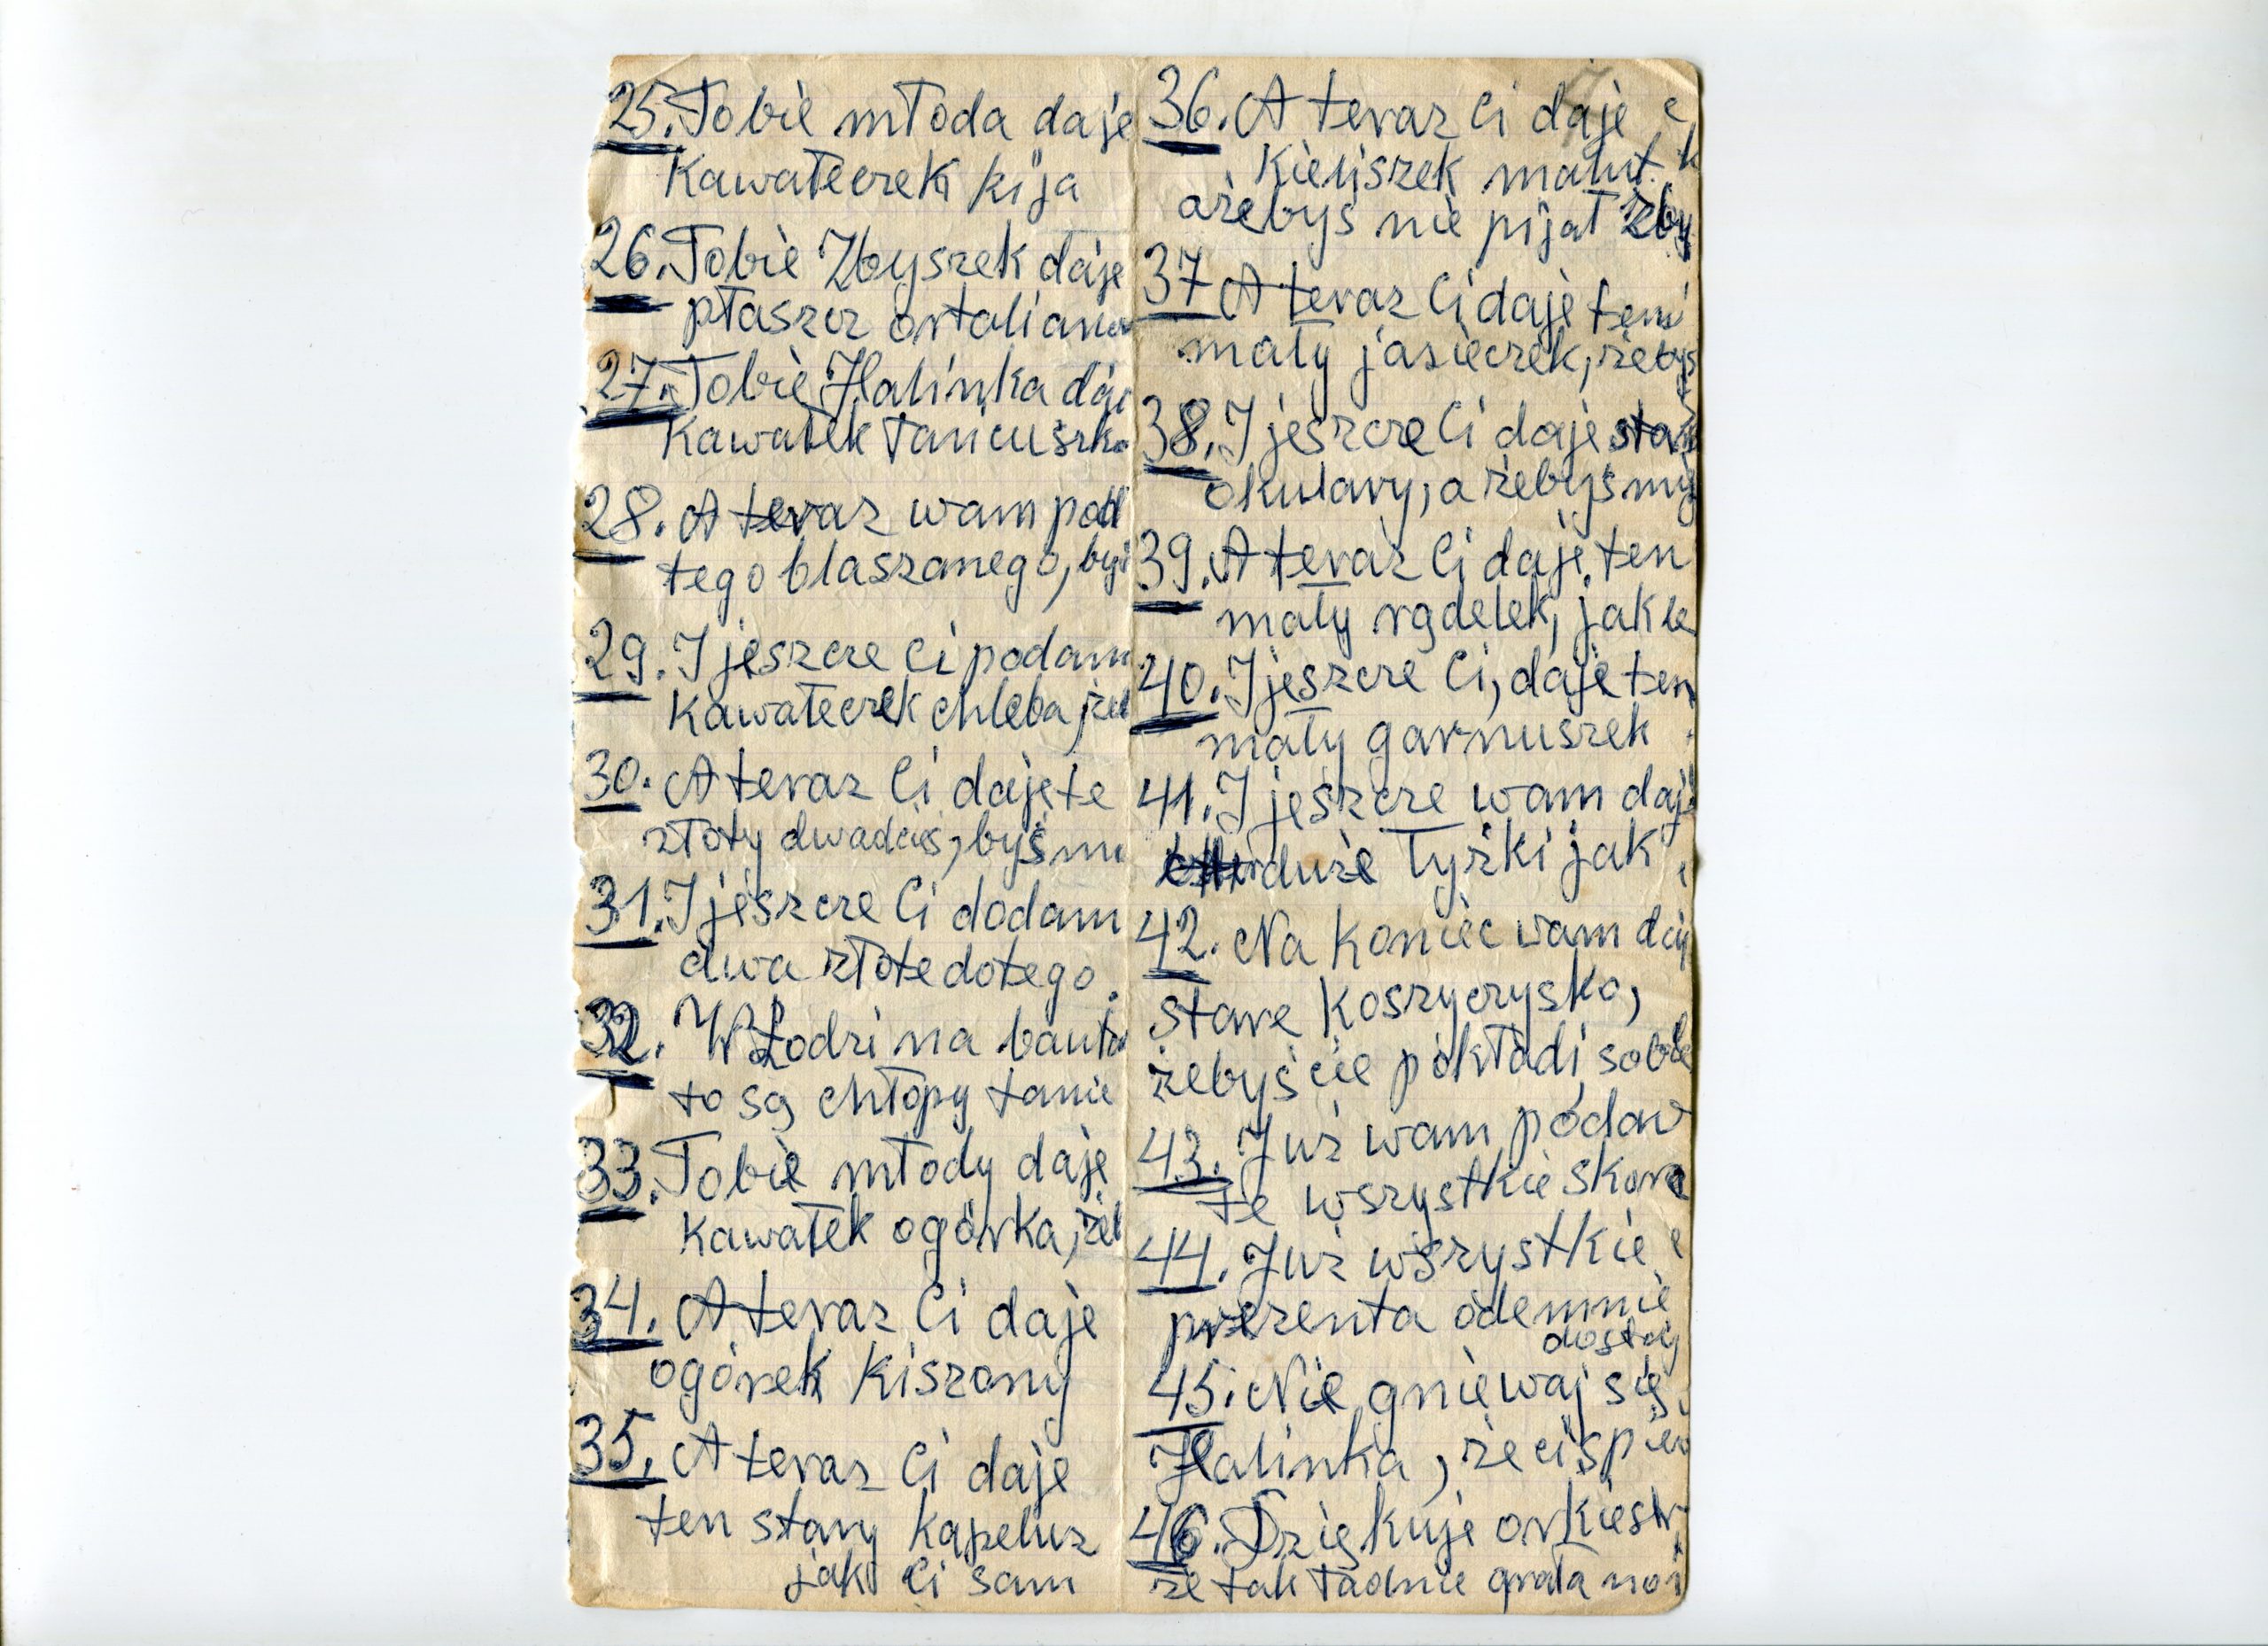 25. Tobie młoda daje
Kawałeczek kija
26. Tobie Zbyszek daje
płaszcz ortalianow
27. Tobie Halinka daje
Kawałek łańcuszka
28. A teraz wam pod
tego blaszanego, byś
29. I jeszcze Ci podam
Kawałeczek chleba, żeb
30. A teraz Ci daje te
złoty dwadcieś, byś mi
31. I jeszcze Ci dodam
dwa złote dotego.
32. W Łodzi na bauto
to są chłopy tanie
33. Tobie młody daje
Kawałek ogórka, żeb
34. A teraz Ci daje
ogórek Kiszony
35. A teraz Ci daje
ten stary Kapelusz
jak Ci sam
36. A teraz Ci daje
Kieliszek malut. k
ażebyś nie pijał zby
37 A teraz Ci daje ten
mały jasieczek, żebyś
38. I jeszcze Ci daje star
okulary, a żebyś my
39. A teraz Ci daje, ten
mały rądelek, jak ze
40. I jeszcze Ci, daje ten
mały garnuszek
41. I jeszcze wam daj
duże łyżki jak
42. Na koniec wam daj
stare Koszyczysko,
żebyście pokładi sobie
43. Już wam podar
te wszystkie skar
44. Już wszystkie
prezenta odemnie
dostaj
45. Nie gniewaj się
Halinka, że ci śpiew
46. Dziękuje orkiestr
że tak ładnie grała nom